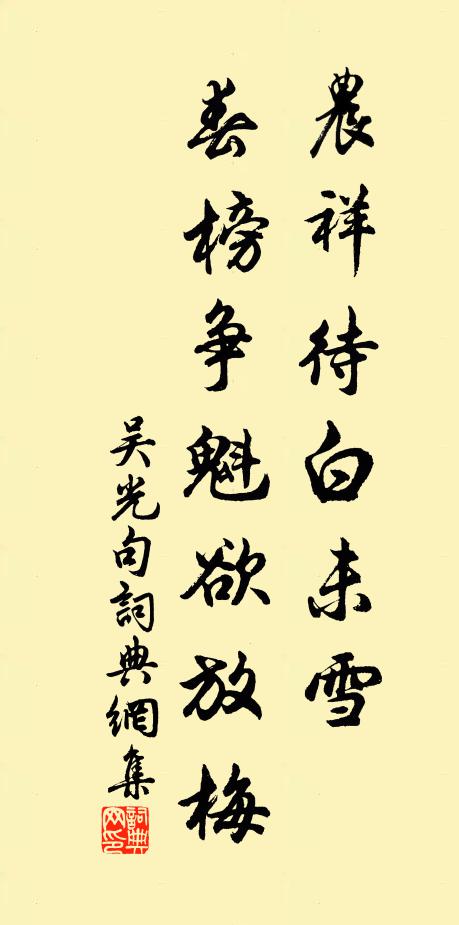 農祥待白未雪
春榜争魁欲放梅
吴光句詞典網集
詞典网印